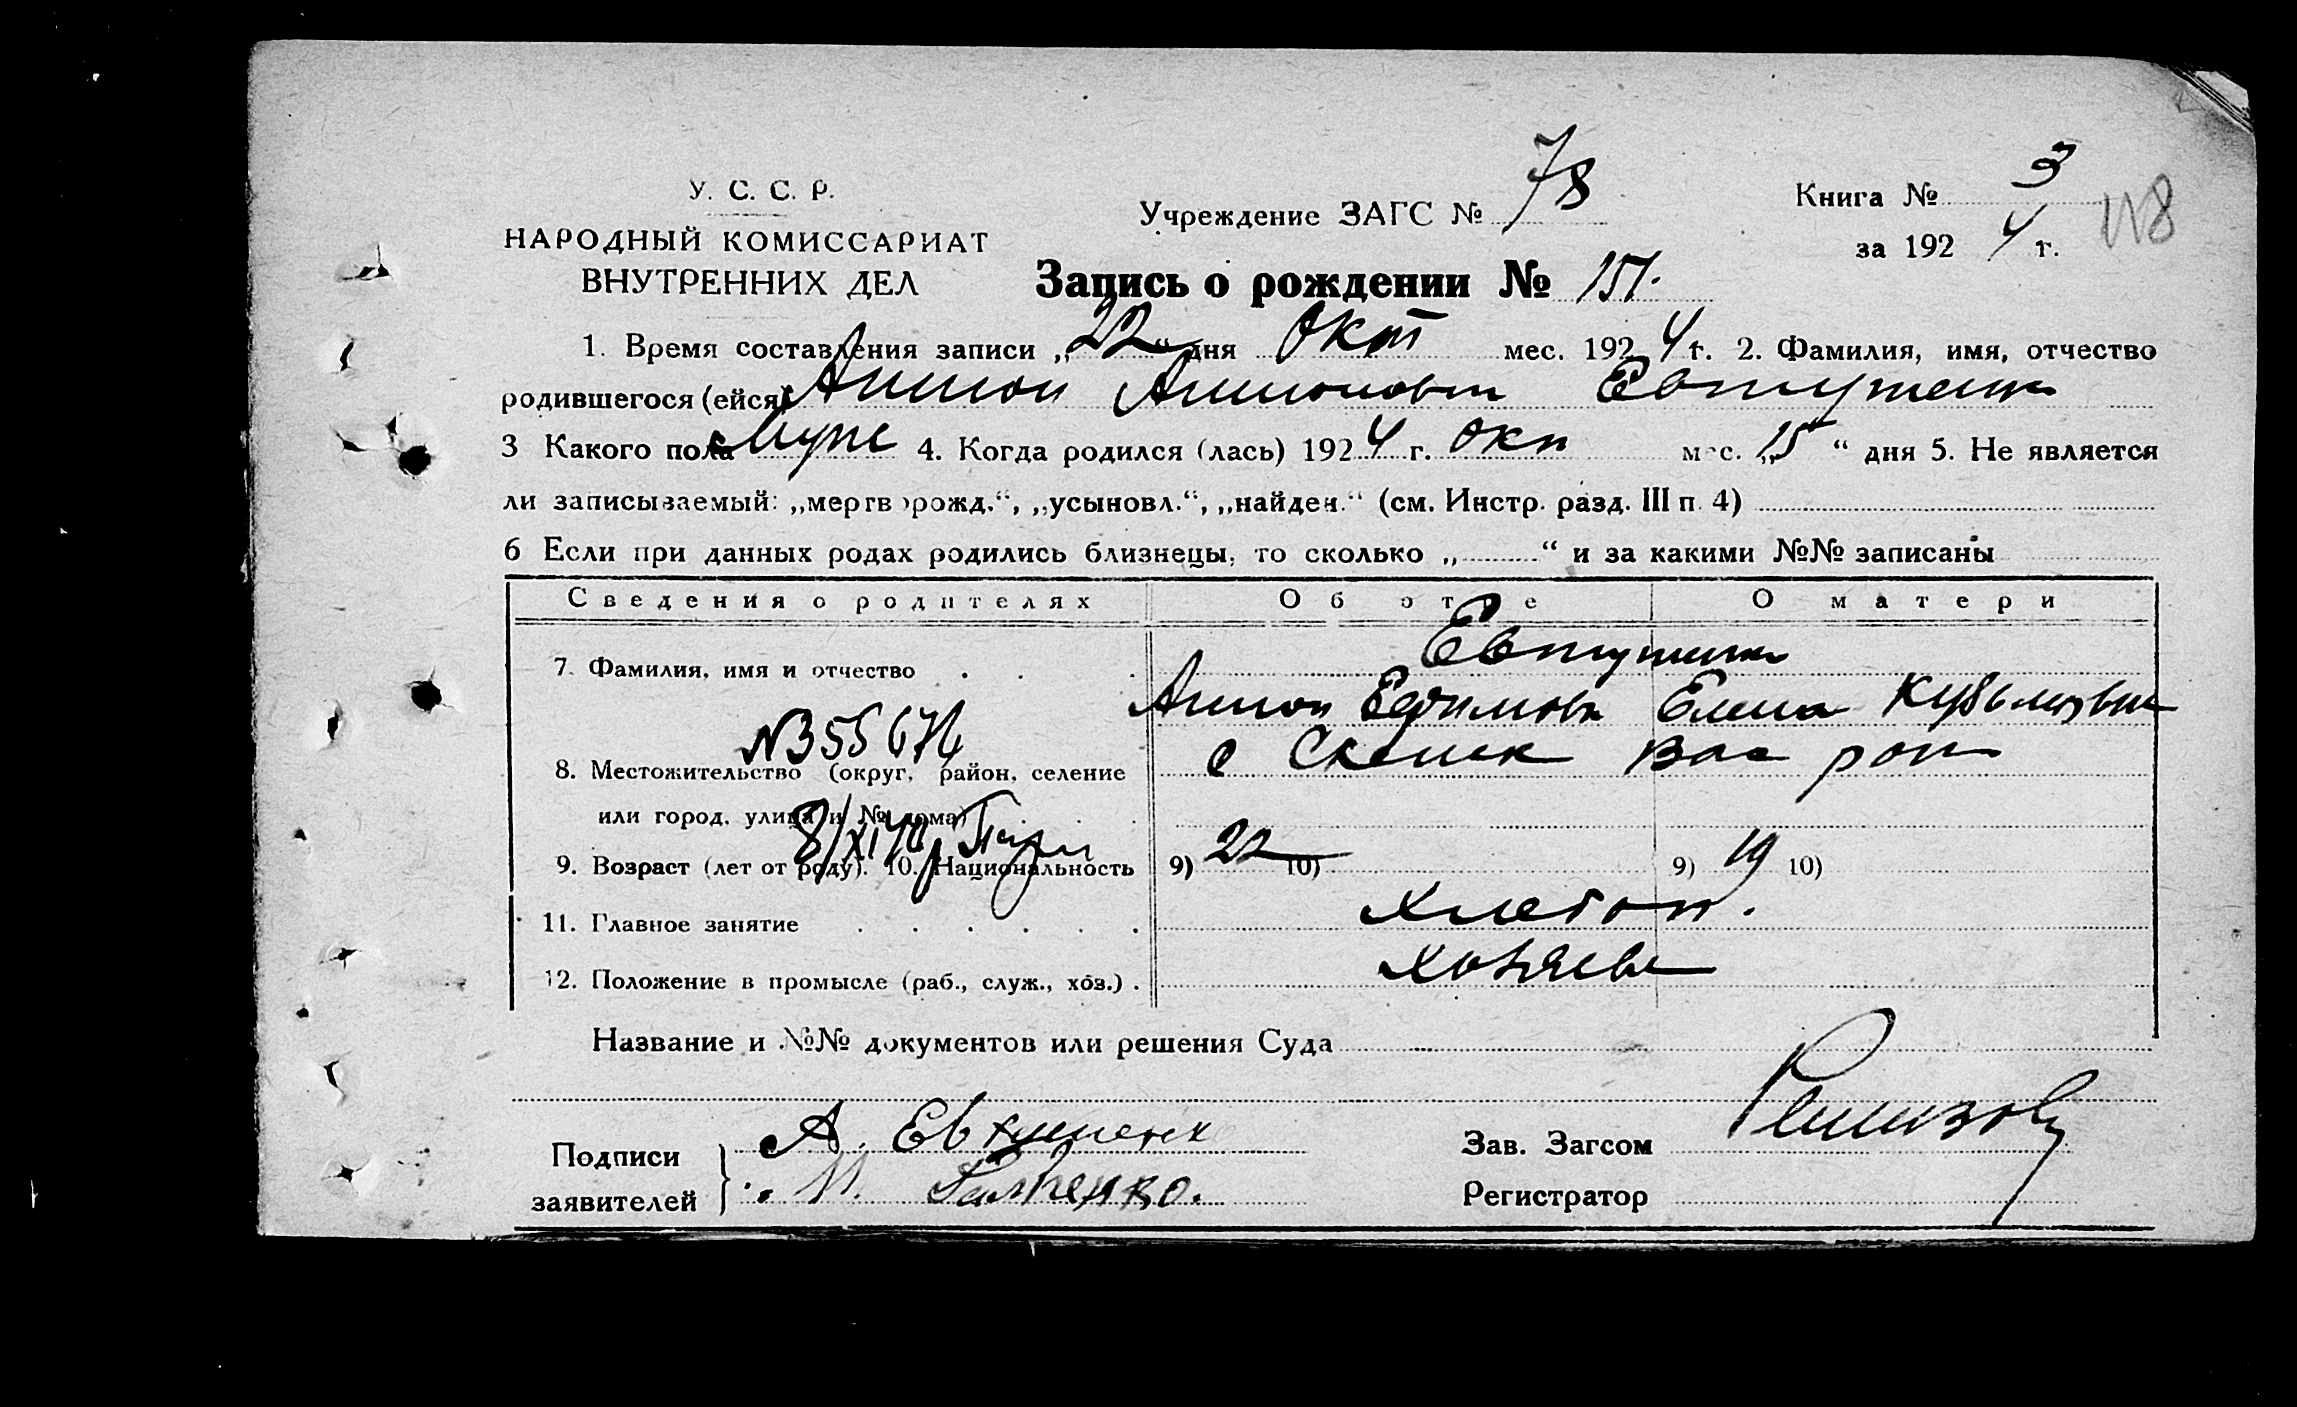 У. С. С. Р.
НАРОДНЫЙ КОМИССАРИАТ
ВНУТРЕННИХ ДЕЛ
Учреждение ЗАГС № 78
Книга № 3
за 1924 г.
118
Запись о рождении № 151.
1. Время составления записи „22“ дня Окт мес. 1924 г. 2. Фамилия, имя, отчество
родившегося (ейся) Антон Антонович Евтушенко
3 Какого пола Муж 4. Когда родился (лась) 1924 г. Окт мес. „15“ дня 5. Не является
ли записываемый: „мертворожд.“, „усыновл.“, „найден.“ (см. Инстр. разд. III п. 4)
6 Если при данных родах родились близнецы, то сколько „ “ и за какими №№ записаны
Сведения о родителях Об отце О матери
7. Фамилия, имя и отчество Евтушенко
Антон Ефимович Елена Кузьмовна
№355676
8. Местожительство (округ, район, селение с Скелек Вас рон
или город, улица и № дома)
8/XI 40
9. Возраст (лет от роду). 10. Национальность 9) 22 10) 9) 19 10)
11. Главное занятие Хлебоп.
12. Положение в промысле (раб., служ., хоз.) Хозяева
Название и №№ документов или решения Суда
Подписи
заявителей
А. Евтушенк
И. 
Зав. Загсом
Регистратор